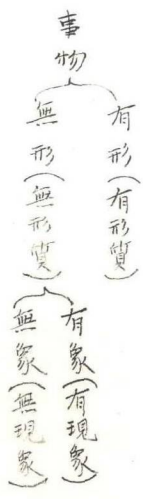 事物
有形（有形質）
無形（無形質）
有象（有現象）
無象（無現象）